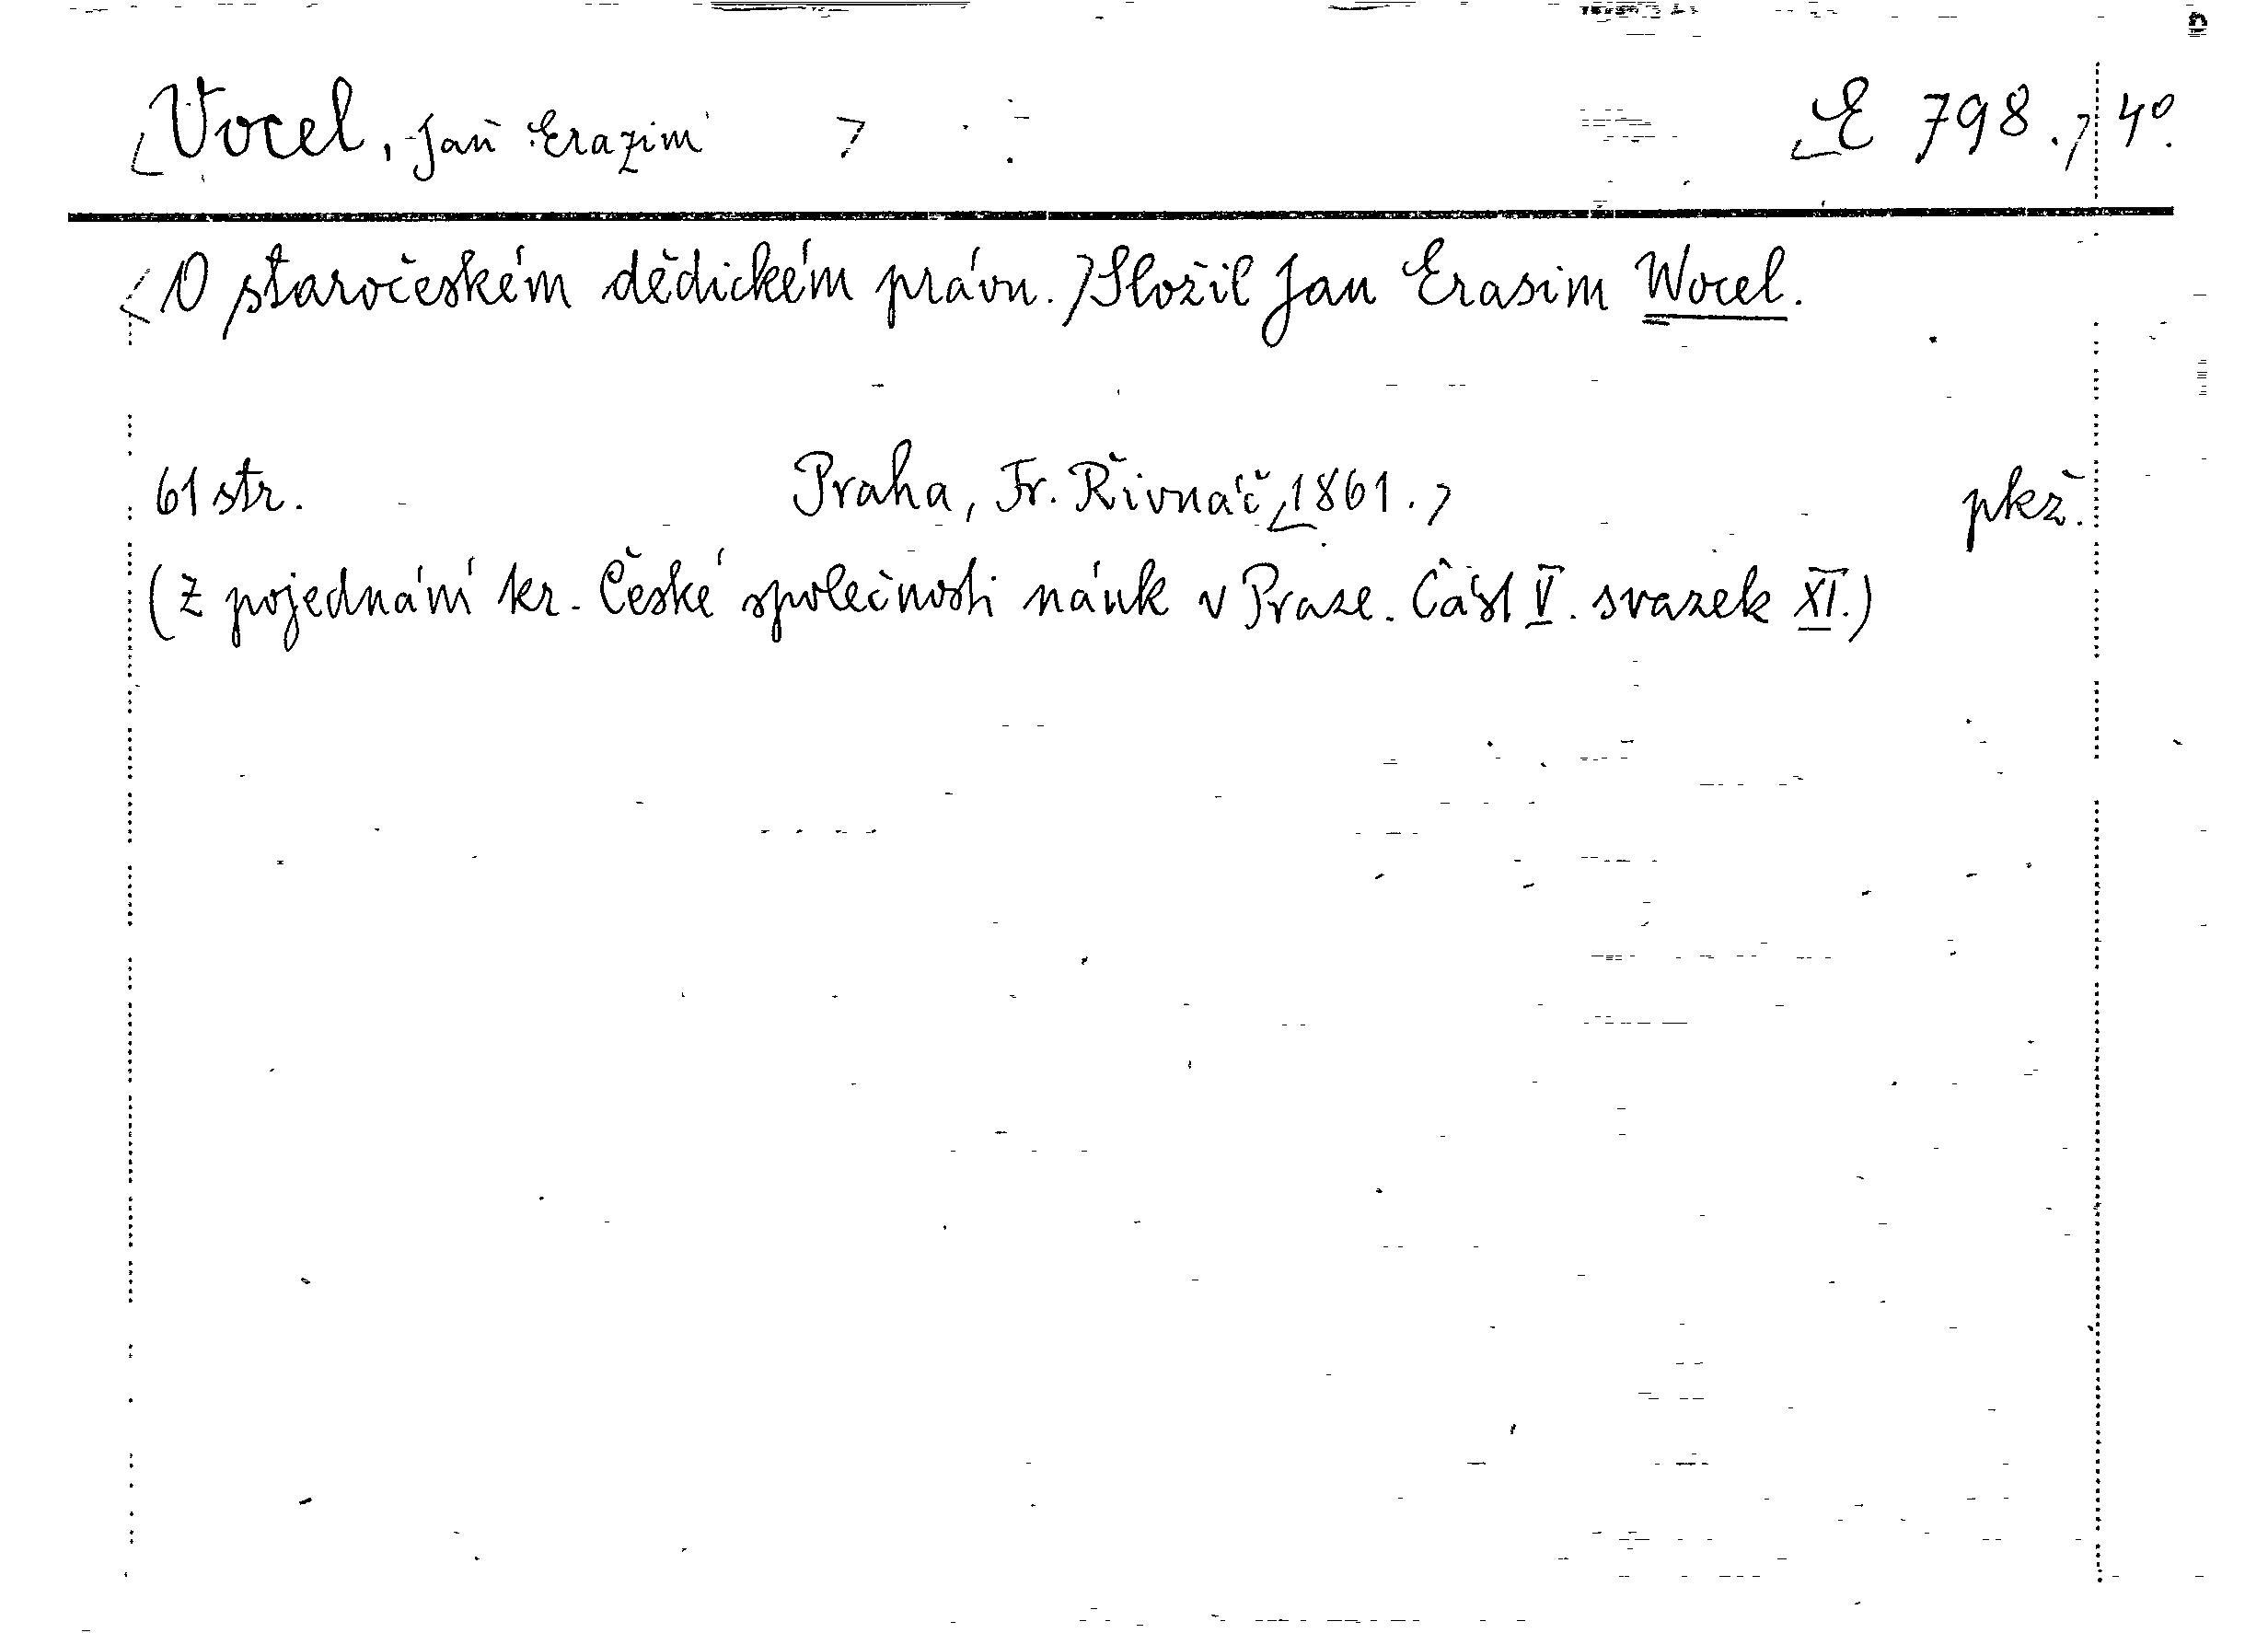 Vocel, Jan Erazim E 798. 4°.
O staročeském dědickém právu. Složil Jan Erasim Wocel.
61 str. Praha, Fr. Řivnáč, 1861. pkž.
(Z pojednání kr. České společnosti náuk v Praze. Část V. svazek XI.)